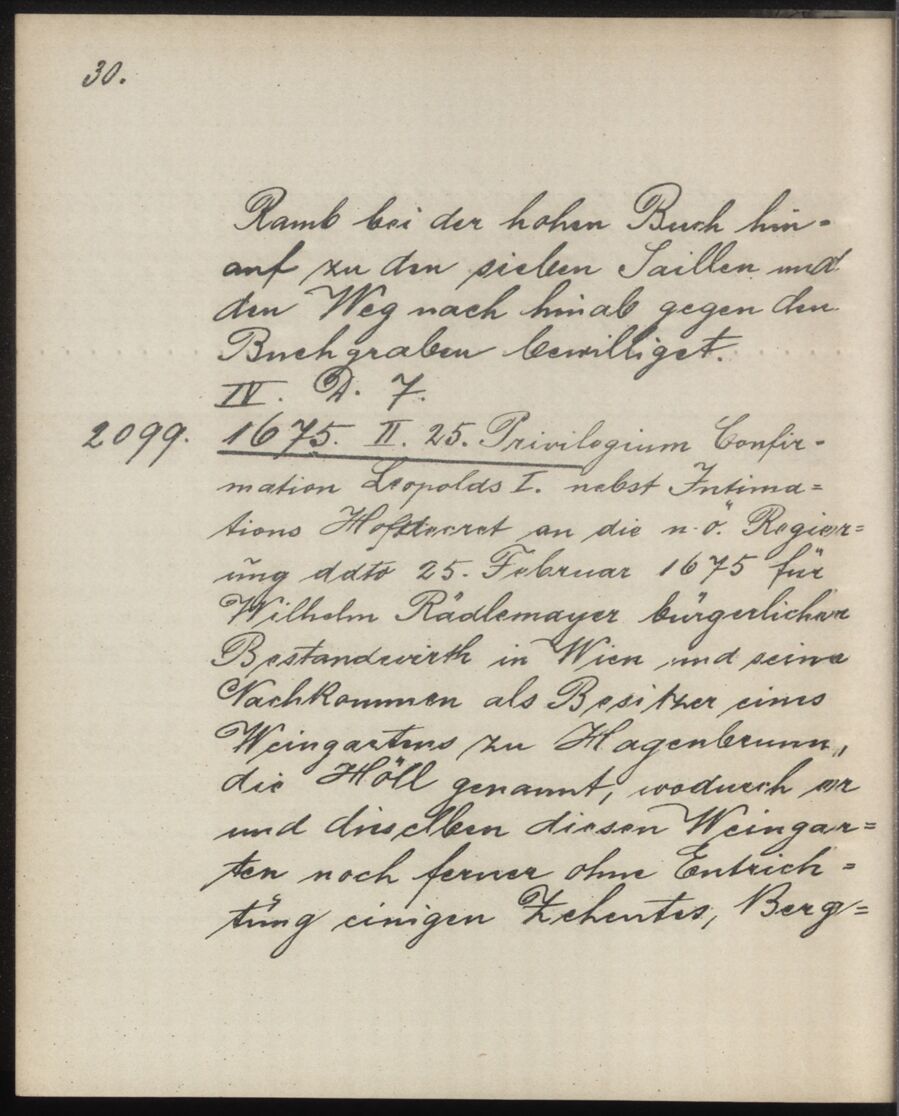 30.
Ramb bei der hohen Buch hin-
auf zu den sieben Saillen und
den Weg nach hinab gegen den
Buchgraben bewilliget.
IV. D. 7.
2099. 1675. II. 25. Privilegium Confir-
mation Leopolds I. nebst Intima=
tions Hofdecret an die n. ö. Regier=
ung ddto 25. Februar 1675 für
Wilhelm Rädlemayer bürgerlicher
Bestandwirth in Wien und seine
Nachkommen als Besitzer eines
Weingartens zu Hagenbrunn,
die Höll genannt, wodurch er
und dieselben diesen Weingar=
ten noch ferner ohne Entrich=
tung einigen Zehentes, Berg=